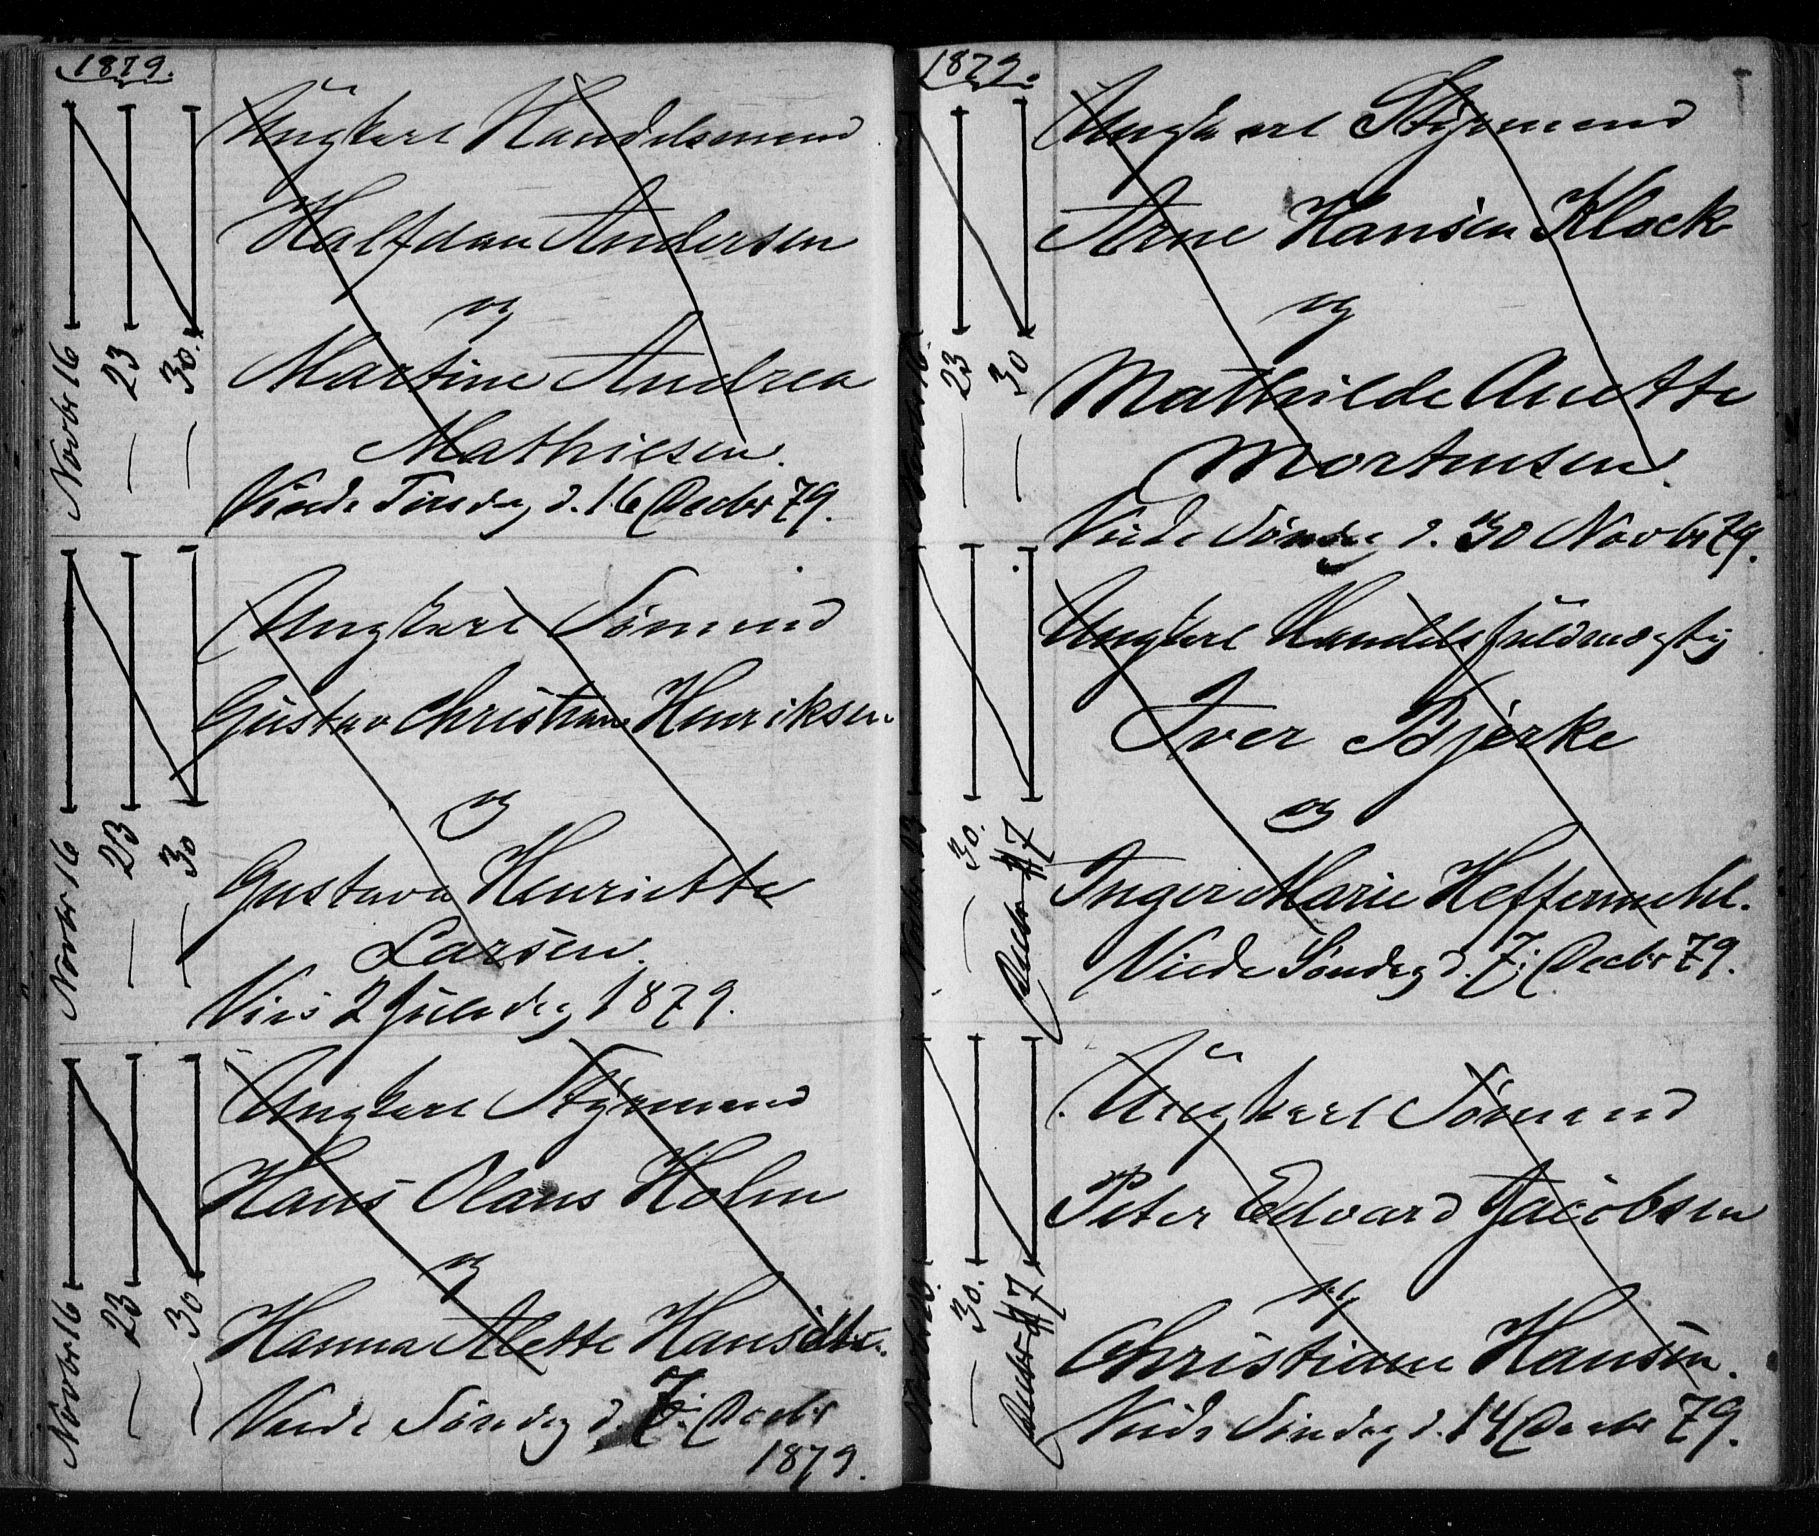 1879.
Novbr 16
— 23
— 30.
Ungkarl Handelsmand
Halfdan Andersen
og
Martine Andrea
Mathiesen.
Viede Tirsdag d. 16 Decbr 79.
Novbr 16
— 23
— 30
Ungkarl Sømand
Gustav Christian Henriksen
og
Gustava Henriette
Larsen.
Vies 2 Juledag 1879.
Novbr 16
— 23
— 30
Ungkarl Styrmand
Hans Olaus Holm
og
Hanna Alette
Viede Søndag d. 7: Decbr
1879.
1879.
— 23
— 30
Ungkarl Styrmand
Arne Hansen Klock
og
Mathilde Anette
Mortensen.
Viede Søndag d. 30 Novbr 79.
— 30.
Decbr 7
Ungkarl Handelsfuldmægtig
Iver Bjerke
og
Inger Marie Heffermehl.
Viede Søndag d. 7: Decbr 79.
— 30.
Decbr 7
Ungkarl Sømand
Peter Edvard Jacobsen
og
Christiane Hansen.
Viede Søndag d. 14 Decbr 79.